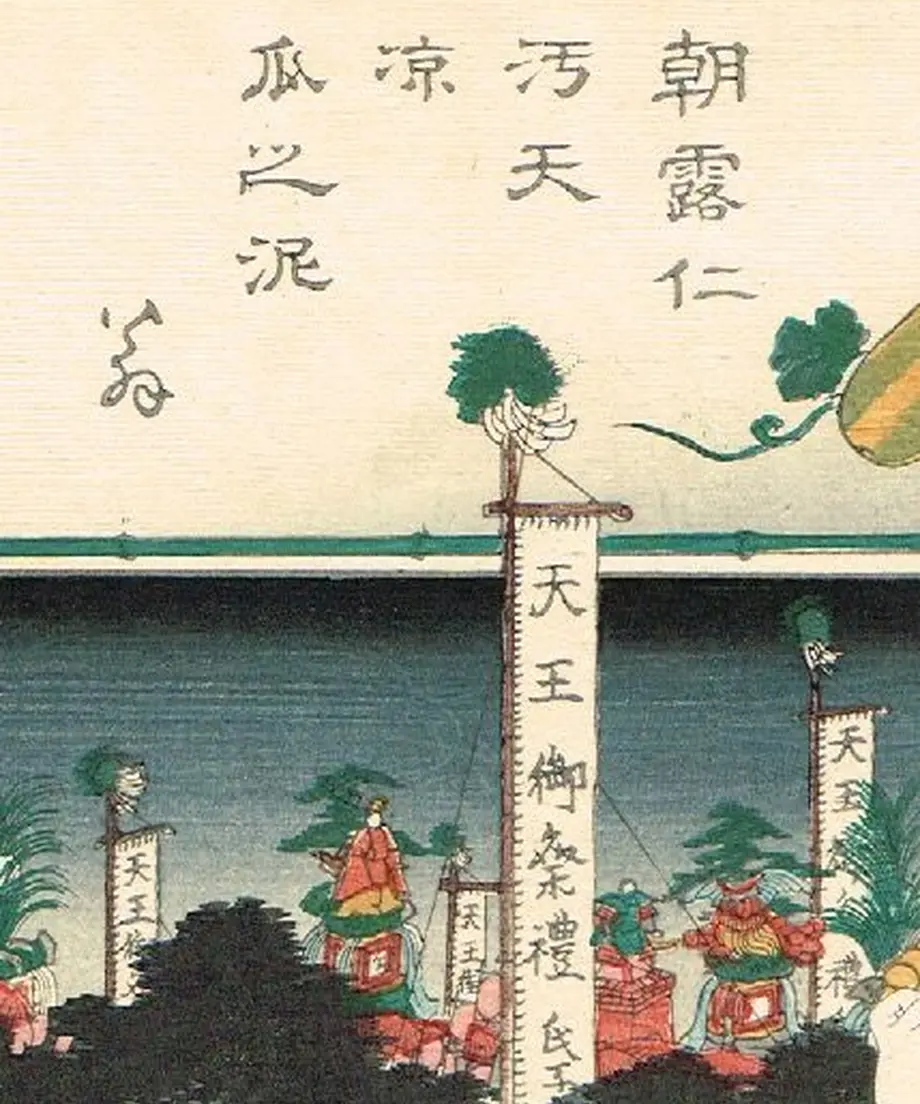 朝露仁
汚天
凉
瓜之泥
翁
天王御祭禮氏子
天王
天王御
天王御